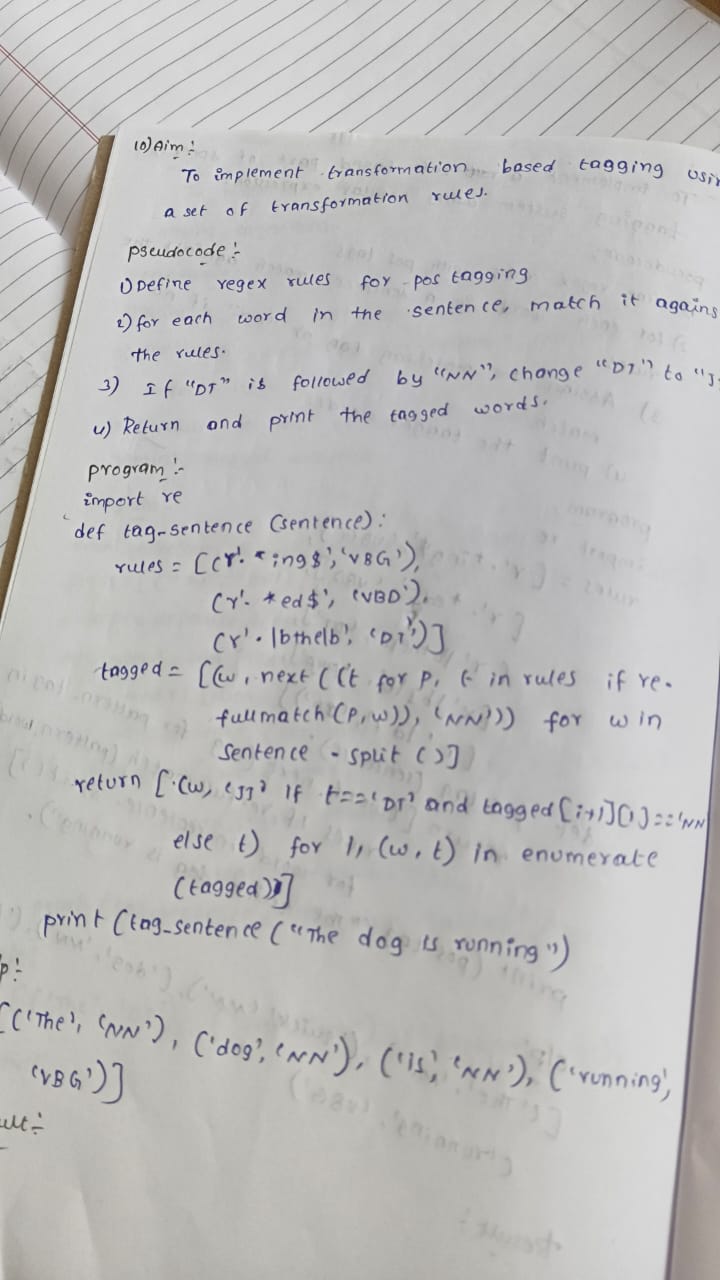 10) Aim :
To implement transformation based tagging usin
a set of transformation rules.
pseudocode :-
1) Define regex rules for pos tagging
2) for each word in the sentence, match it agains
the rules.
3) If "DT" is followed by "NN", change "DT" to "J
4) Return and print the tagged words.
program :-
import re
def tag-sentence (sentence):
rules = [(r'.*ing$', 'VBG'),
(r'.*ed$', 'VBD'),
(r'.\bthe\b', 'DT')]
tagged = [(w, next ((t for P, t in rules if re.
fullmatch (P, w)), 'NN')) for w in
sentence . split ()]
return [(w, 'JJ' if t == 'DT' and tagged [i+1][1] == 'NN
else t) for i, (w, t) in enumerate
(tagged))]
print (tag_sentence ("The dog is running")
p:-
[('The', 'NN'), ('dog', 'NN'), ('is', 'NN'), ('running',
'VBG')]
ult:-